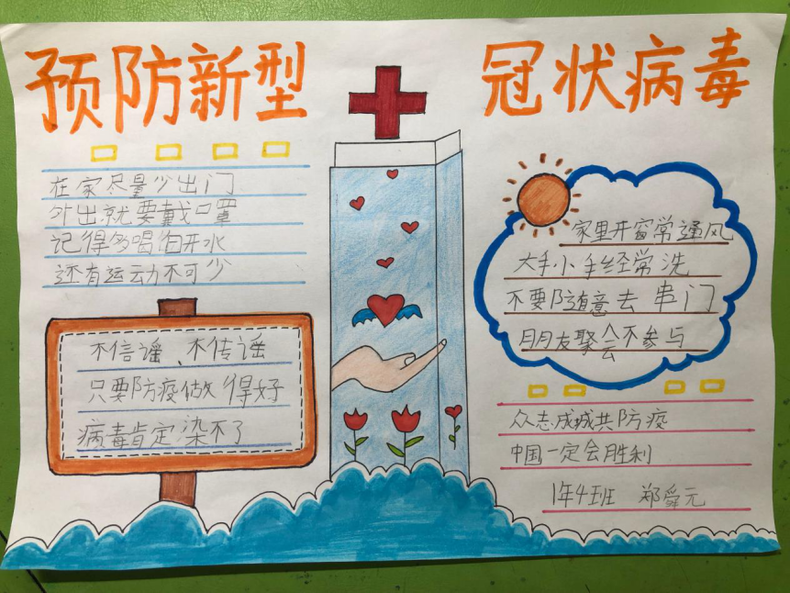 预防新型
冠状病毒
在家尽量少出门
外出就要戴口罩
记得多喝白开水
还有运动不可少
不信谣、不传谣
只要防疫做得好
病毒肯定染不了
家里开窗常通风
大手小手经常洗
不要随意去串门
朋友聚会不参与
众志成城共防疫
中国一定会胜利
1年4班 郑舜元